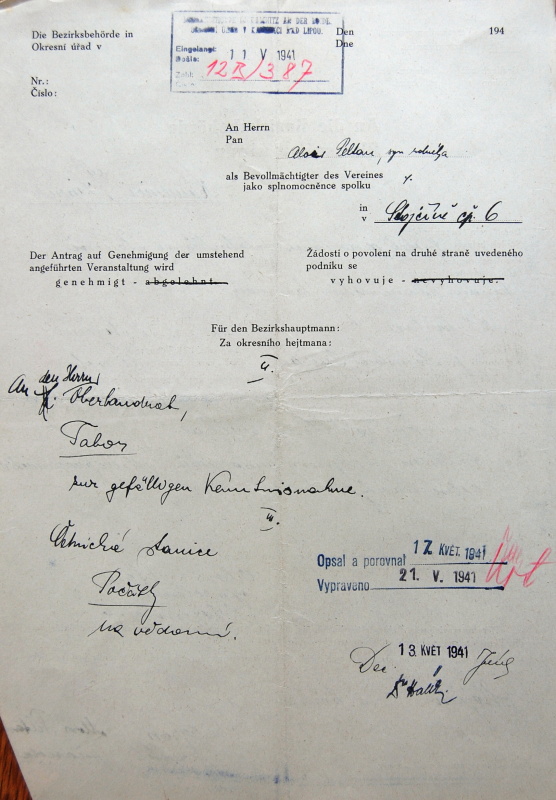 Die Bezirksbehörde in
Okresní úřad v
Den 194
Dne
Eingelangt:
Došlo: 11 V 1941
Zahl: 12B/387
Nr.:
Číslo:
An Herrn
Pan
Alois
als Bevollmächtigter des Vereines
jako splnomocněnce spolku
in
v
čp. 6
Der Antrag auf Genehmigung der umstehend
angeführten Veranstaltung wird
genehmigt - abgelehnt.
Žádosti o povolení na druhé straně uvedeného
podniku se
vyhovuje - nevyhovuje.
Für den Bezirkshauptmann:
Za okresního hejtmana:
II.
An den Herrn
Oberlandrat,
Tabor
zur gefälligen Kenntnisnahme.
III.
Četnická stanice
Počátky
na vědomí.
Opsal a porovnal 17. KVĚT. 1941
Vypraveno 21. V. 1941
13 KVĚT 1941